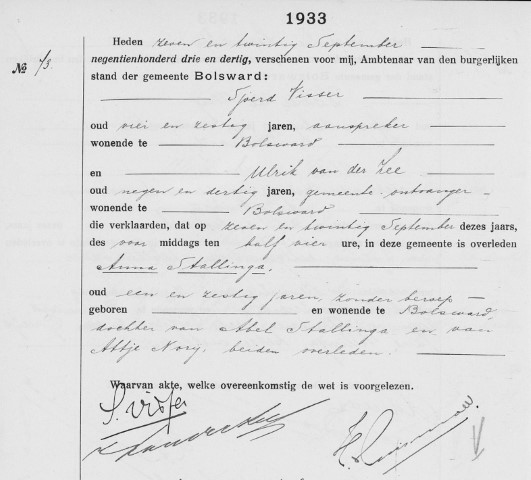 1933
Heden zeven en twintig September
negentienhonderd drie en dertig, verschenen voor mij, Ambtenaar van den burgerlijken
№ 73. stand der gemeente Bolsward:
Sjoerd Visser
oud vier en zestig jaren, aanspreker
wonende te Bolsward
en Ulrik van der Zee
oud negen en dertig jaren, gemeente-ontvanger
wonende te Bolsward
die verklaarden, dat op zeven en twintig September dezes jaars,
des voor middags ten half vier ure, in deze gemeente is overleden
Anna Stallinga.
oud een en zestig jaren, zonder beroep
geboren en wonende te Bolsward
dochter van Abel Stallinga en van
Attje Nory, beiden overleden.
Waarvan akte, welke overeenkomstig de wet is voorgelezen.
S. Visser